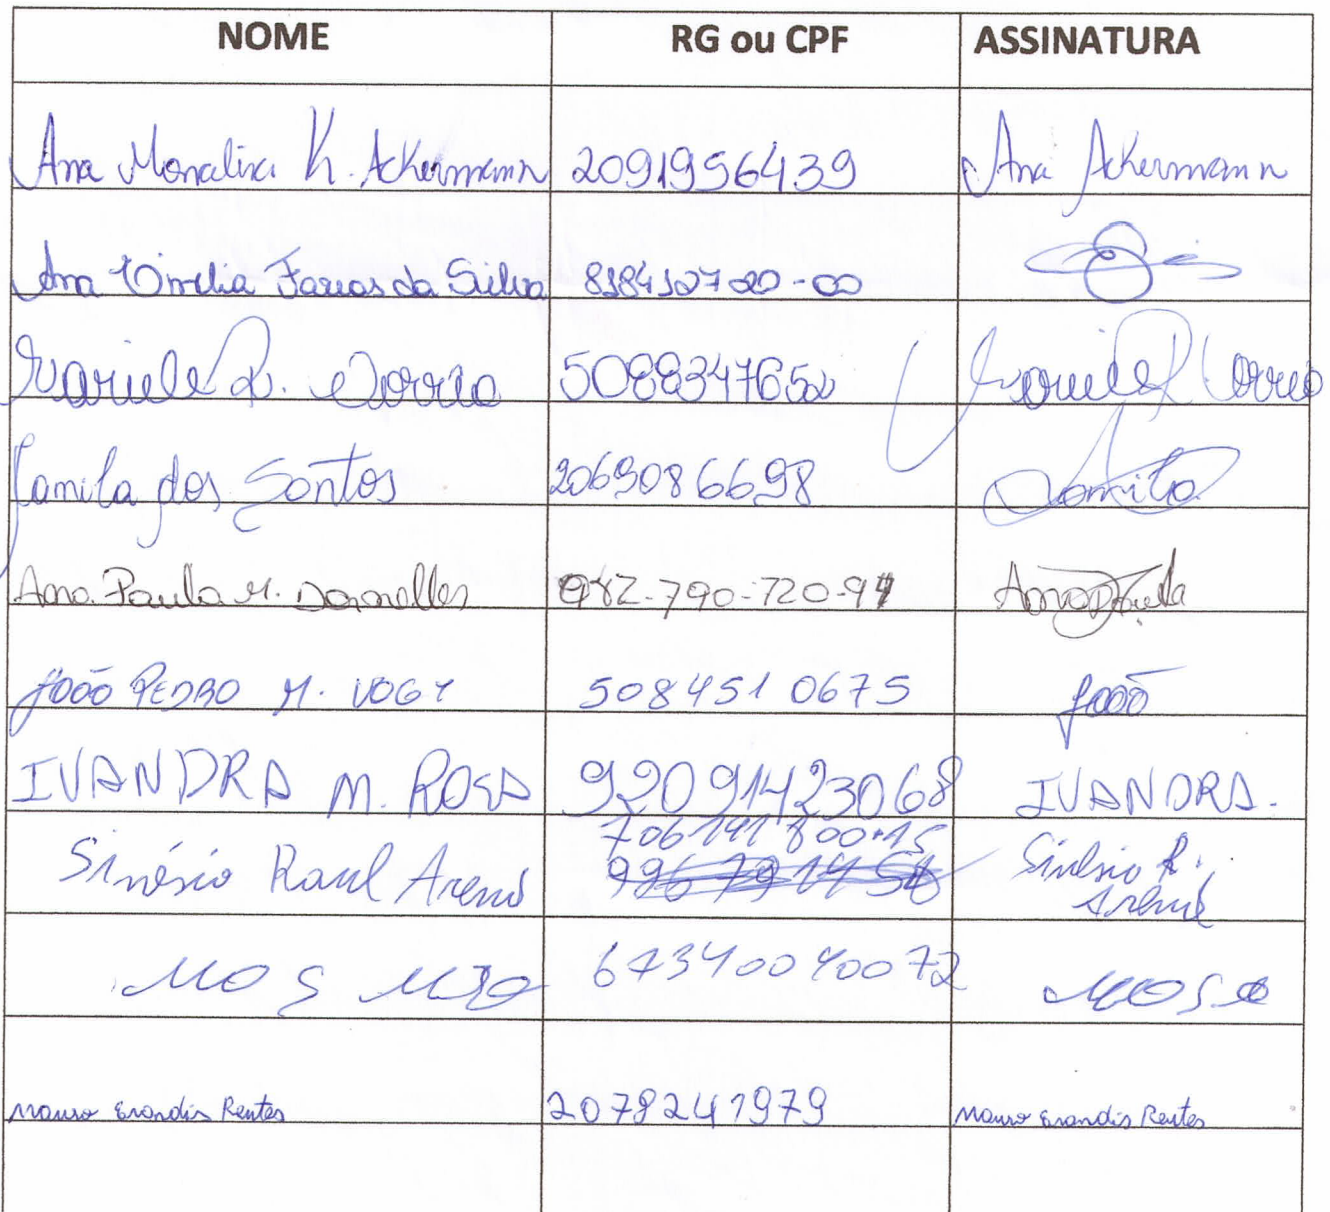 NOME RG ou CPF ASSINATURA
Ana Monalisa K. Ackermann 2091956439 Ana Ackermann
Ana Farias da Silva
Mariele R. Correa 5088347652 Mariele R Correa
Camila dos Santos 2069086698 Camila
Ana Paula M. Dornelles 982-790-720-91 Ana Paula
João PEDRO M. VOGT 5084510675 João
IVANDRA M. ROSA 92091423068 IVANDRA.
706191800-15
Sinésio Raul Arend Sinésio R.
Arend
67340040072
Mauro Evandis Rentes 2078241979 Mauro Evandis Rentes